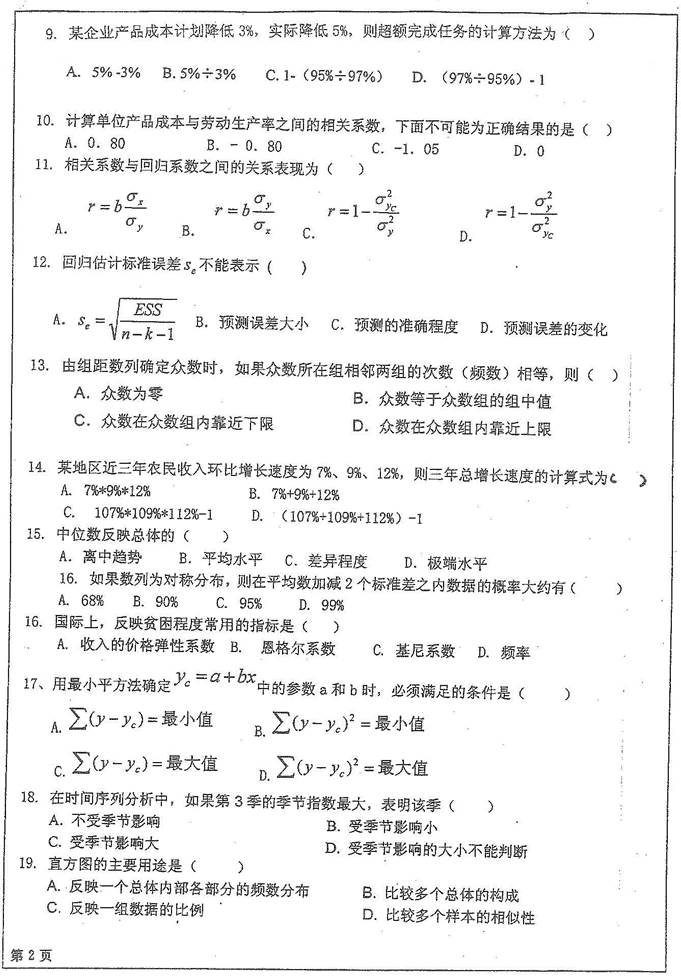 9. 某企业产品成本计划降低 3%，实际降低 5%，则超额完成任务的计算方法为（ ）
A. 5% -3% B. 5%÷3% C. 1-（95%÷97%） D. （97%÷95%）- 1
10. 计算单位产品成本与劳动生产率之间的相关系数，下面不可能为正确结果的是（ ）
A. 0. 80 B. - 0. 80 C. -1. 05 D. 0
11. 相关系数与回归系数之间的关系表现为（ ）
A. r = b σx/σy B. r = b σy/σx C. r = 1 - σ²yC/σ²y D. r = 1 - σ²y/σ²yC
12. 回归估计标准误差 Se 不能表示（ ）
A. Se = √(ESS/(n-k-1)) B. 预测误差大小 C. 预测的准确程度 D. 预测误差的变化
13. 由组距数列确定众数时，如果众数所在组相邻两组的次数（频数）相等，则（ ）
A. 众数为零 B. 众数等于众数组的组中值
C. 众数在众数组内靠近下限 D. 众数在众数组内靠近上限
14. 某地区近三年农民收入环比增长速度为 7%、9%、12%，则三年总增长速度的计算式为（ ）
A. 7%*9%*12% B. 7%+9%+12%
C. 107%*109%*112%-1 D. （107%+109%+112%）-1
15. 中位数反映总体的（ ）
A. 离中趋势 B. 平均水平 C. 差异程度 D. 极端水平
16. 如果数列为对称分布，则在平均数加减 2 个标准差之内数据的概率大约有（ ）
A. 68% B. 90% C. 95% D. 99%
16. 国际上，反映贫困程度常用的指标是（ ）
A. 收入的价格弹性系数 B. 恩格尔系数 C. 基尼系数 D. 频率
17、用最小平方法确定 yc = a + bx 中的参数 a 和 b 时，必须满足的条件是（ ）
A. ∑(y - yc) = 最小值 B. ∑(y - yc)² = 最小值
C. ∑(y - yc) = 最大值 D. ∑(y - yc)² = 最大值
18. 在时间序列分析中，如果第 3 季的季节指数最大，表明该季（ ）
A. 不受季节影响 B. 受季节影响小
C. 受季节影响大 D. 受季节影响的大小不能判断
19. 直方图的主要用途是（ ）
A. 反映一个总体内部各部分的频数分布 B. 比较多个总体的构成
C. 反映一组数据的比例 D. 比较多个样本的相似性
第 2 页